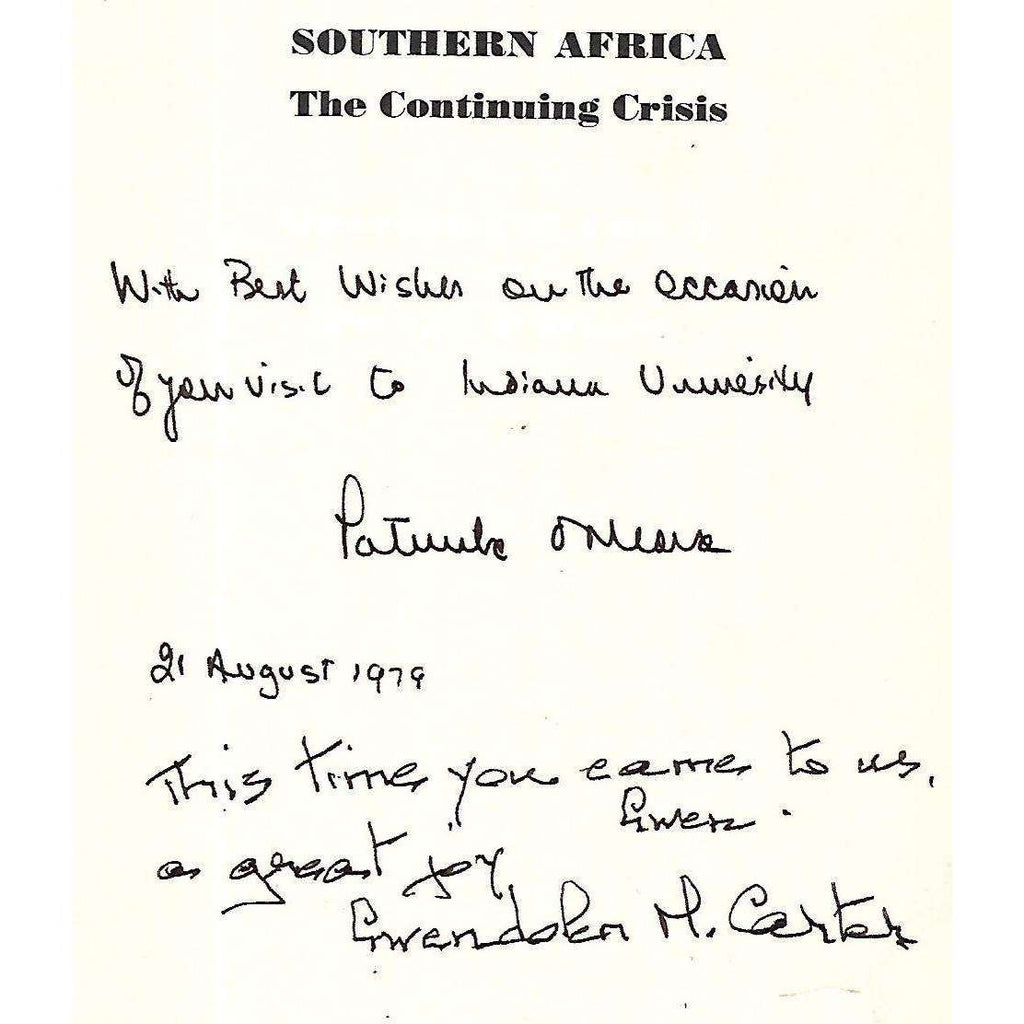 SOUTHERN AFRICA
The Continuing Crisis
With Best Wishes on the occasion
of your visit to Indiana University
Patrick O'Meara
21 August 1979
This time you came to us,
Gwen.
a great joy
Gwendolen M. Carter